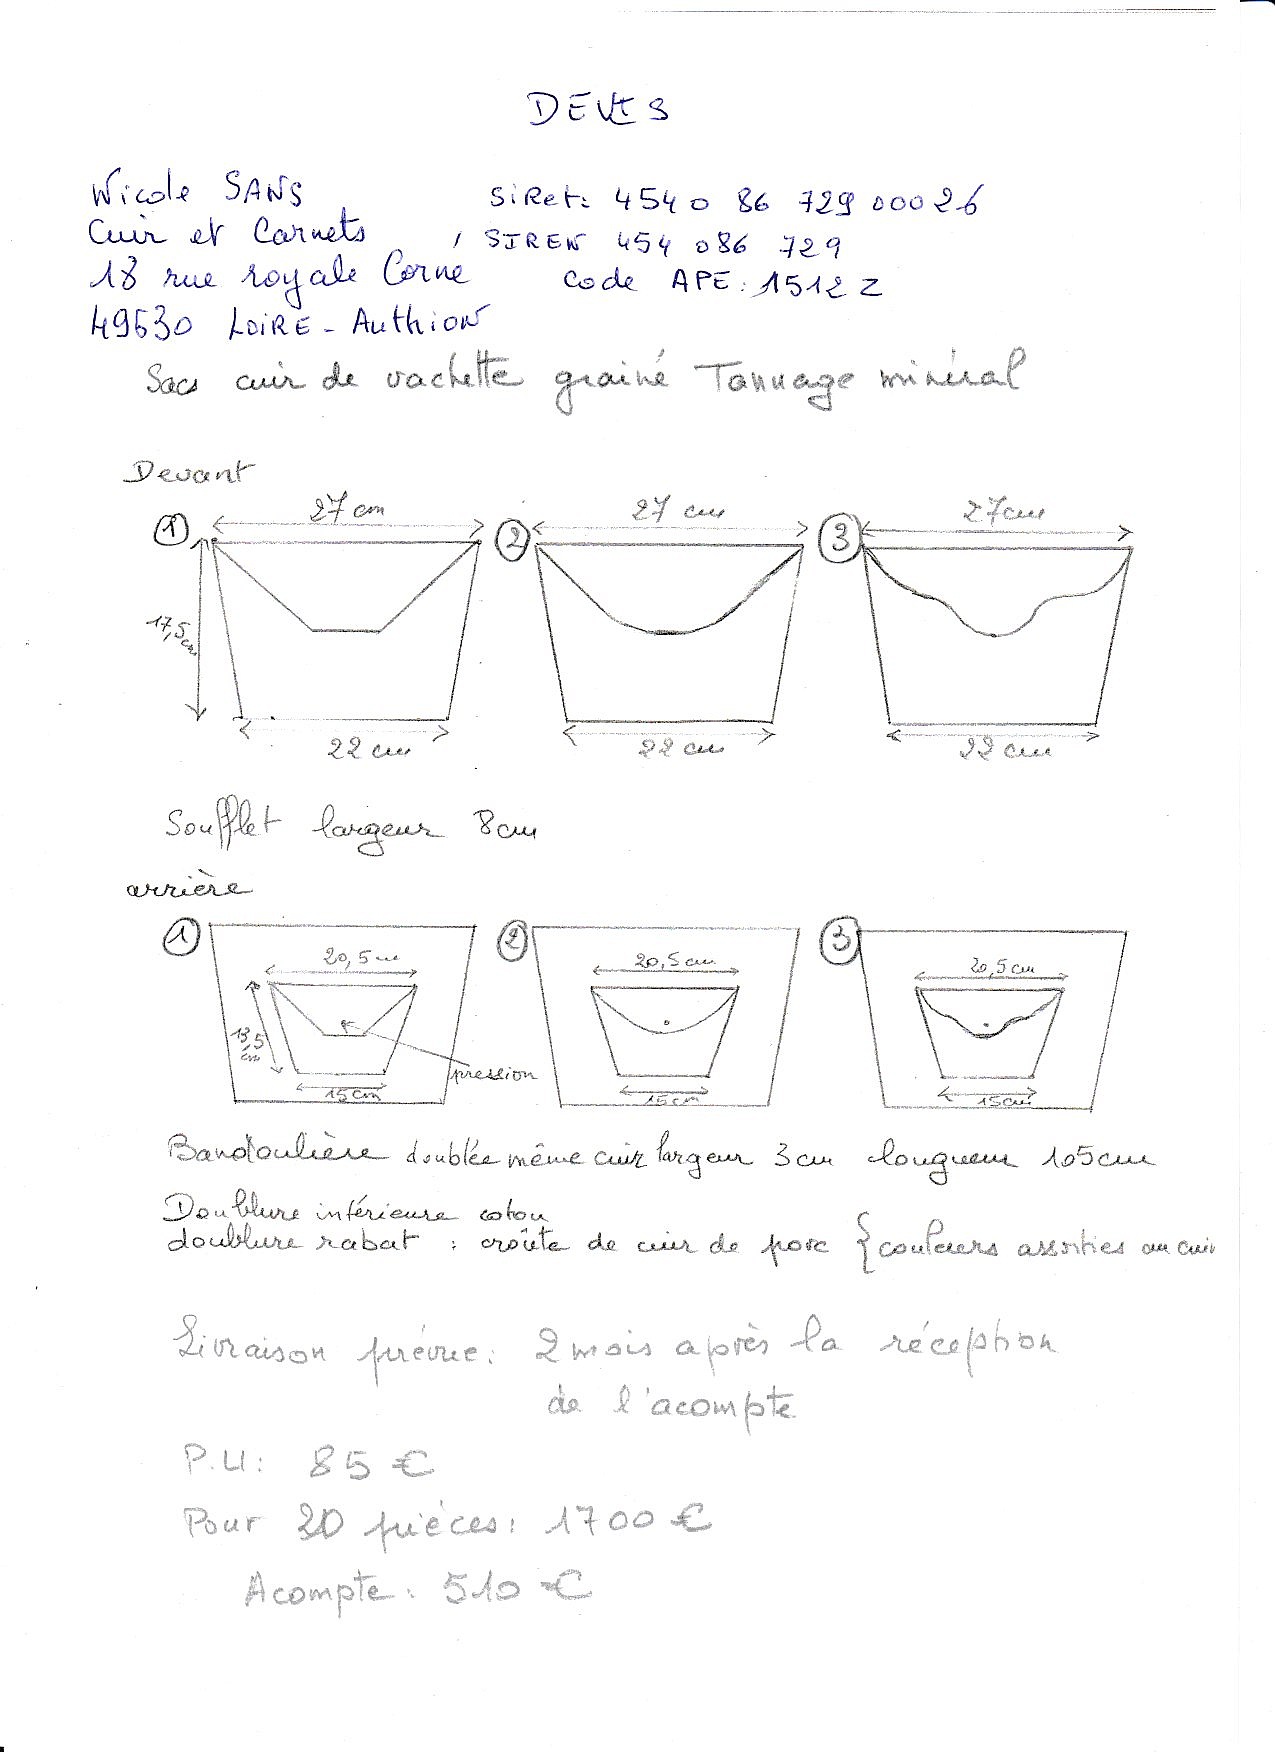 DEVIS
Nicole SANS
Siret: 454 0 86 729 00026
Cuir et Carnets
SIREN 454 086 729
18 rue royale Corne
Code APE: 1512 Z
49630 LOIRE - Authion
Sacs cuir de vachette grainé Tannage minéral
Devant
1 27 cm 2 27 cm 3 27cm
17,5cm
22 cm 22 cm 22 cm
Soufflet largeur 8cm
arrière
1 2 3
20,5cm 20,5cm 20,5cm
13,5 cm
pression
15cm 15cm 15cm
Bandoulière doublée même cuir largeur 3cm longueur 105cm
Doublure intérieure coton
doublure rabat : croûte de cuir de porc { couleurs assorties au cuir
Livraison prévue: 2 mois après la réception
de l'acompte
P.U: 85 €
Pour 20 pièces: 1700 €
Acompte: 510 €